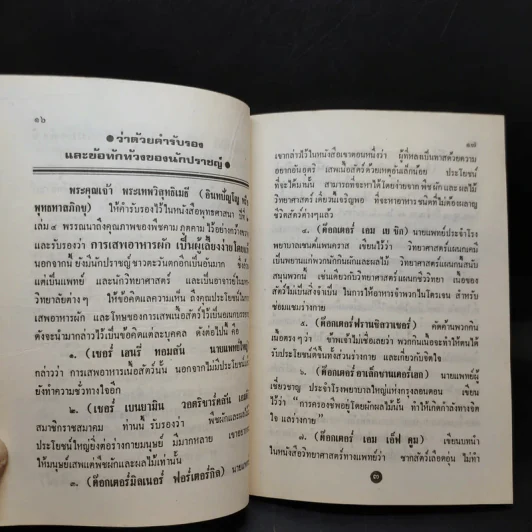 ๑๖
● ว่าด้วยคำรับรอง
และข้อทักท้วงของนักปราชญ์ ●
พระคุณเจ้า พระเทพวิสุทธิเมธี (อินทปัญโญ หรือ
พุทธทาสภิกขุ) ให้คำรับรองไว้ในหนังสือพุทธศาสนา ปีที่
เล่ม ๔ พรรณนาถึงคุณภาพของชาตาม ภูตคาม ไว้อย่างกว้างขวาง
และรับรองว่า การเสพอาหารผัก เป็นผู้เลี้ยงง่ายโดยแท้
นอกจากนี้ ยังมีนักปราชญ์ชาวตะวันตกอีกเป็นอันมาก ซึ่ง
แต่เป็นแพทย์ และนักวิทยาศาสตร์ และเป็นอาจารย์ในมหา
วิทยาลัยต่างๆ ให้ข้อคิดแลความเห็น ถึงคุณประโยชน์ในการ
เสพอาหารผัก และโทษของการเสพเนื้อสัตว์ไว้เป็นอเนกประการ
ดังจะนำมากล่าวไว้เป็นข้อคิดแต่ละบุคคล ดังต่อไปนี้ คือ
๑. (เซอร์ เฮนรี่ ทอมสัน นายแพทย์ใหญ่)
กล่าวว่า การเสพอาหารเนื้อสัตว์นั้น นอกจากไม่มีประโยชน์แล้ว
ยังทำความชั่วทางใจอีก
๒. (เซอร์ เบนยามิน วอตริชาร์ดสัน
สมาชิกราชสมาคม ท่านนี้ รับรองว่า พืชผักและผลไม้
ประโยชน์ใหญ่ยิ่งต่อร่างกายมนุษย์ มีมากหลาย เขาอยาก
ให้มนุษย์เสพแต่พืชผักและผลไม้เท่านั้น
๓. (ด๊อกเตอร์มิลเนอร์ ฟอร์เตอร์กิล) นายแพทย์
๑๗
เขากล่าวไว้ในหนังสือเขาตอนหนึ่งว่า ผู้ที่หลงเป็นทาสด้วยความ
อยากอันอุตริ เสพเนื้อสัตว์ด้วยเหตุอันเล็กน้อย ประโยชน์
ที่จะได้มานั้น สามารถที่จะหาได้โดยง่ายจาก พืชผัก และ ผลไม้
วิทยาศาสตร์ เดี๋ยวนี้เจริญพอ ที่จะทำอาหารชนิดที่ไม่ต้องผลาญ
ชีวิตสัตว์ต่างๆ แล้ว
๔. (ด๊อกเตอร์ เอม เย ชิก) นายแพทย์ประจำโรง
พยาบาลเซนต์แพนคราส เขียนไว้ว่า วิทยาศาสตร์แผนกเคมี
เป็นพยานแก่พวกนักกินผักและผลไม้ วิทยาศาสตร์แผนกนี้สนับ
สนุนพวกนี้ เช่นเดียวกับวิทยาศาสตร์แผนกชีววิทยา เนื้อของ
สัตว์ไม่เป็นสิ่งจำเป็น ในการให้อาหารจำพวกไนโตรเจน สำหรับ
ซ่อมแซมร่างกาย
๕. (ด๊อกเตอร์ฟรานซิสวาเชอร์) คัดค้านพวกกิน
เนื้อตรงๆ ว่า ข้าพเจ้าไม่เชื่อเลยว่า พวกกินเนื้อจะทำให้คนได้
รับประโยชน์ดีขึ้นทั้งส่วนร่างกาย และเกี่ยวกับชีวิตใจ
๖. (ด๊อกเตอร์ อาเล็กซานเตอร์เฮก) นายแพทย์ผู้
เชี่ยวชาญ ประจำโรงพยาบาลใหญ่แห่งกรุงลอนดอน เขียน
ไว้ว่า "การครองชีพอยู่โดยผักผลไม้นั้น ทำให้เกิดกำลังทางจิต
ใจ แลร่างกาย"
๗. (ด๊อกเตอร์ เอม เอ็ฟ คูม) เขียนบทนำ
ในหนังสือวิทยาศาสตร์ทางแพทย์ว่า ซากสัตว์เลือดอุ่น ไม่ทำ
๓